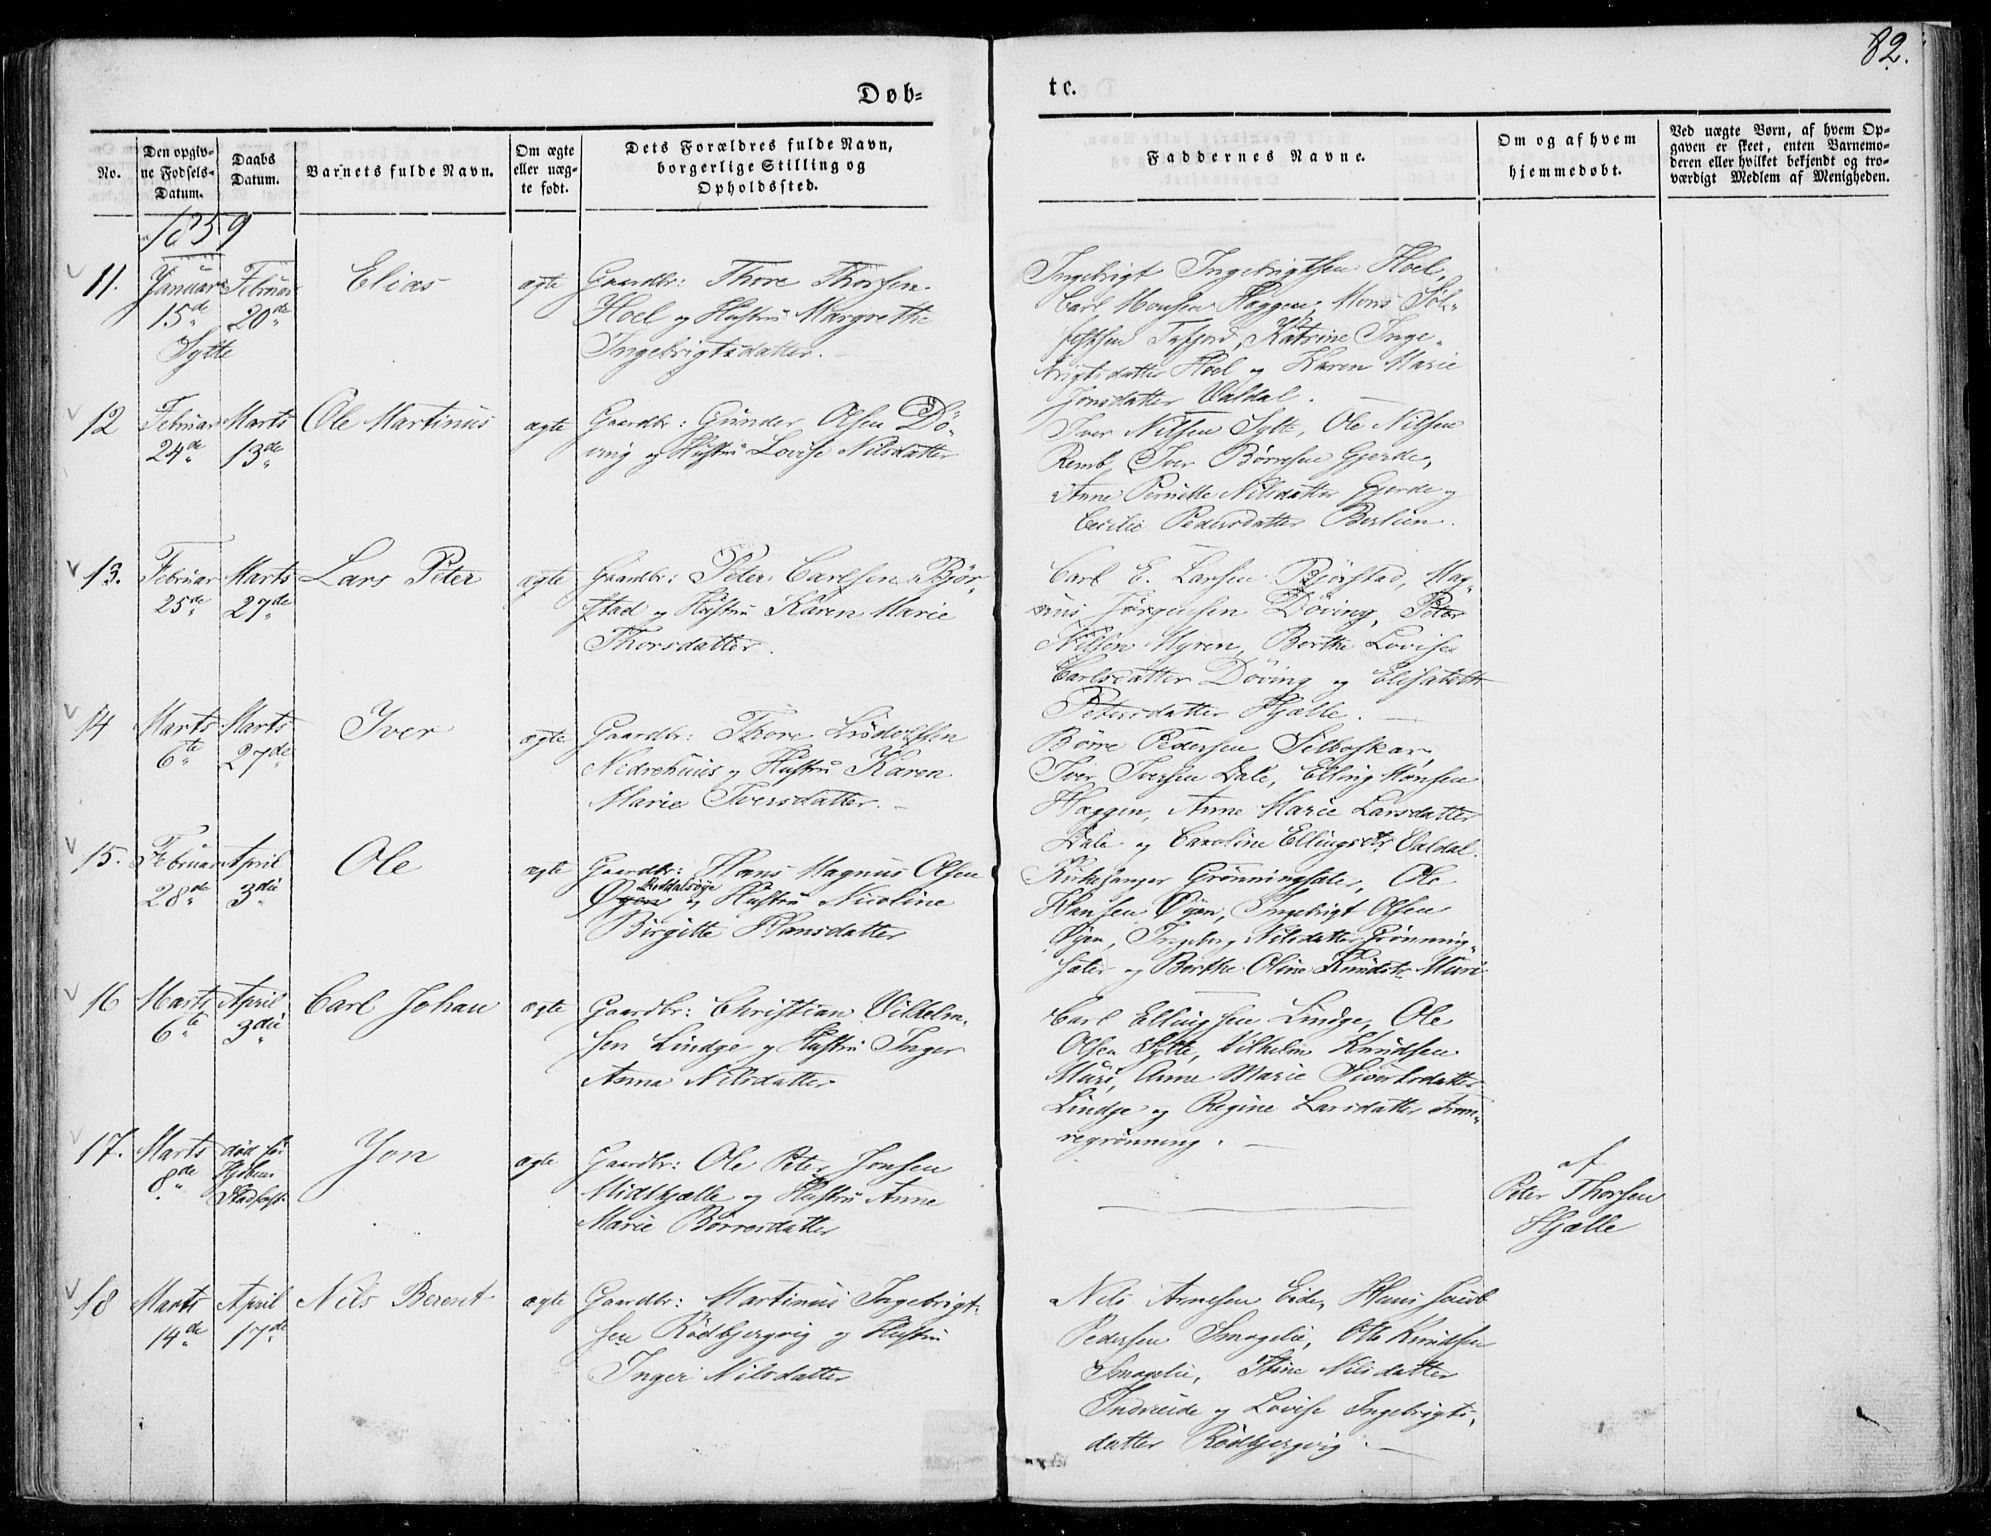 82.
Døb-
te.
No.
Den opgiv-
ne Fødsels-
Datum.
Daabs
Datum.
Barnets fulde Navn.
Om ægte
eller uæg-
te født.
Dets Forældres fulde Navn,
borgerlige Stilling og
Opholdssted.
Faddernes Navne.
Om og af hvem
hjemmedøbt.
Ved uægte Børn, af hvem Op-
gaven er skeet, enten Barnemo-
deren eller hvilket bekjendt og tro-
værdigt Medlem af Menigheden.
1859
11.
Januar
15de
Sylte
Februar
20de
Elias
ægte
Gaardbr: Thore Thorsen
Hoel og Hustru Margrethe
Ingebrigtsdatter.
Ingebrigt Ingebrigtsen Hoel,
Carl Monsen Haggen, Mons Søl-
Tafjord, Katrine Inge-
brigtsdatter Hoel og Karen Marie
Jonsdatter Valdal.
12
Februar
24de
Marts
13de
Ole Martinus
ægte
Gaardbr: Gunder Olsen Dö-
ving og Hustru Lovise Nilsdatter
Iver Nilsen Sylte, Ole Nilsen
Remb, Iver Börresen Gjerde,
Anne Pernille Nilsdatter Gjerde og
Cecilie Pedersdatter Berlien.
13.
Februar
25de
Marts
27de
Lars Peter
ægte
Gaardbr: Peter Carlsen Bjør-
stad og Hustru Karen Marie
Thorsdatter.
Carl E. Larsen Bjørstad, Mag-
nus Jørgensen Döving, Peter
Nilsen Myren, Berthe Lovise
Carlsdatter Döving og Elisabeth
Petersdatter Hjelle.
14
Marts
6te
Marts
27de
Iver
ægte
Gaardbr: Thore Ludolfsen
Nedrehuus og Hustru Karen
Marie Iversdatter.
Börre Pedersen Selboskar,
Iver Iversen Dale, Elling Monsen
Haggen, Anne Marie Larsdatter
Dale og Caroline Ellingsdtr Valdal.
15.
Februar
28de
April
3die
Ole
ægte
Gaardbr: Hans Magnus Olsen
Øyen Liddalsöye og Hustru Nicoline
Birgitte Hansdatter
Kirkesanger Grönningsæter, Ole
Hansen Öyen, Ingebrigt Olsen
Öyen, Ingeborg Nilsdatter Grönning-
sæter og Berthe Oline Knudsdtr Muri
16
Marts
6te
April
3die
Carl Johan
ægte
Gaardbr: Christian Vilhelm-
sen Lindge og Hustru Inger
Anna Nilsdatter
Carl Ellingsen Lindge, Ole
Olsen Sylte, Vilhelm Knudsen
Muri, Anne Marie Sivertsdatter
Lindge og Regine Larsdatter Frem-
regrönning.
17.
Marts
8de
død før
Hjdbns
Stadfæst.
Jon
ægte
Gaardbr: Ole Peter Jonsen
Midthjelle og Hustru Anne
Marie Börresdatter
af
Peter Thorsen
Hjelle
18
Marts
14de
April
17de
Nils Berent
ægte
Gaardbr: Martinus Ingebrigt-
sen Rödbjergvig og Hustru
Inger Nilsdatter
Nils Arnesen Eide, Hans Jacob
Pedersen Smogelie, Otto Knudsen
Smogelie, Stine Nilsdatter
Indreeide og Lovise Ingebrigts-
datter Rödbjergvig.